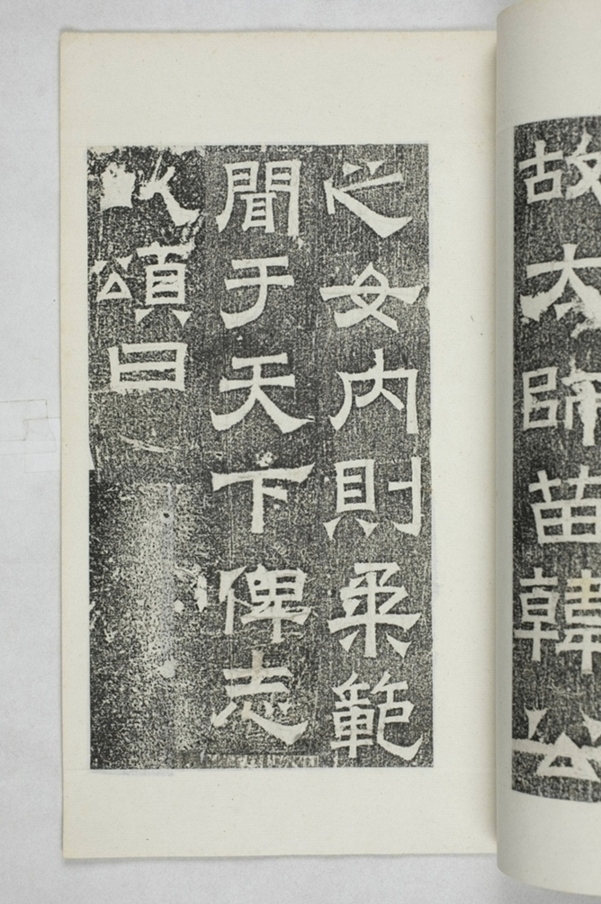 故太師苗韓公
之女內則柔範
聞于天下俾志
厥頌曰